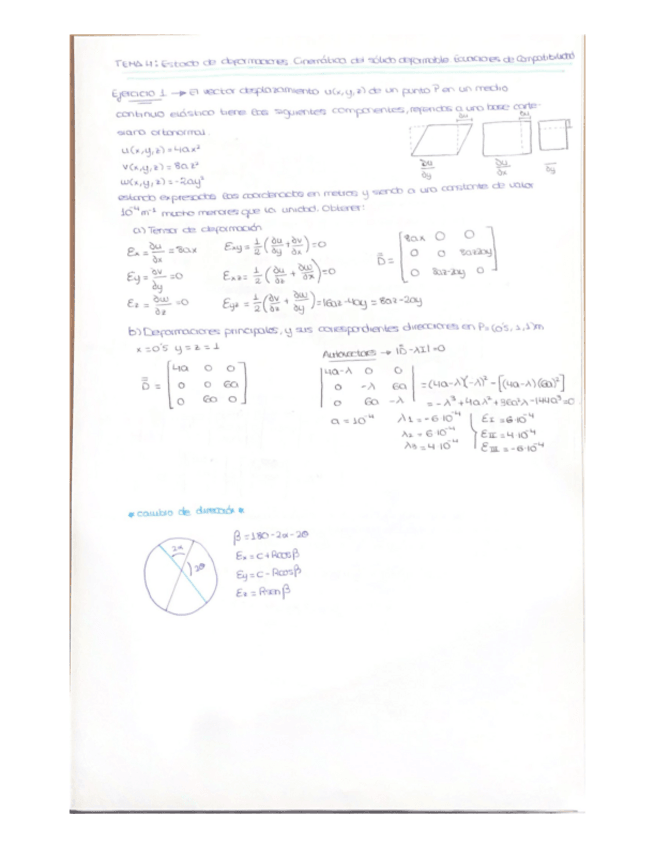 TEMA 4: Estado de deformaciones. Cinemática del sólido deformable. Ecuaciones de Compatibilidad
Ejercicio 1 → El vector desplazamiento u(x,y,z) de un punto P en un medio
continuo elástico tiene las siguientes componentes, referidos a una base carte-
siana ortonormal.
u(x,y,z)=4ax²
v(x,y,z)=8az²
w(x,y,z)=-2ay²
∂u/∂y ∂u/∂x
estando expresadas las coordenadas en metros y siendo a una constante de valor
10⁻⁴m⁻¹ mucho menores que la unidad. Obtener:
a) Tensor de deformación
Ex = ∂u/∂x = 8ax Exy = 1/2 (∂u/∂y + ∂v/∂x) = 0
Ey = ∂v/∂y = 0 Exz = 1/2 (∂u/∂z + ∂w/∂x) = 0
Ez = ∂w/∂z = 0 Eyz = 1/2 (∂v/∂z + ∂w/∂y) = 16az-4ay = 8az-2ay
D = [8ax 0 0
0 0 8az-2ay
0 8az-2ay 0]
b) Deformaciones principales, y sus correspondientes direcciones en P=(0'5, 1, 1)m
x=0'5 y=z=1
D = [4a 0 0
0 0 6a
0 6a 0]
Autovectores → |D-λI|=0
|4a-λ 0 0
0 -λ 6a
0 6a -λ| = (4a-λ)(-λ)² - [(4a-λ)(6a)²]
= -λ³+4aλ²+36a²λ-144a³=0
a = 10⁻⁴ λ1=-6·10⁻⁴ EI=6·10⁻⁴
λ2=6·10⁻⁴ EII=4·10⁻⁴
λ3=4·10⁻⁴ EIII=-6·10⁻⁴
* cambio de dirección *
2α
2θ
β=180-2α-2θ
Ex=C+Rcosβ
Ey=C-Rcosβ
Ez=Rsenβ